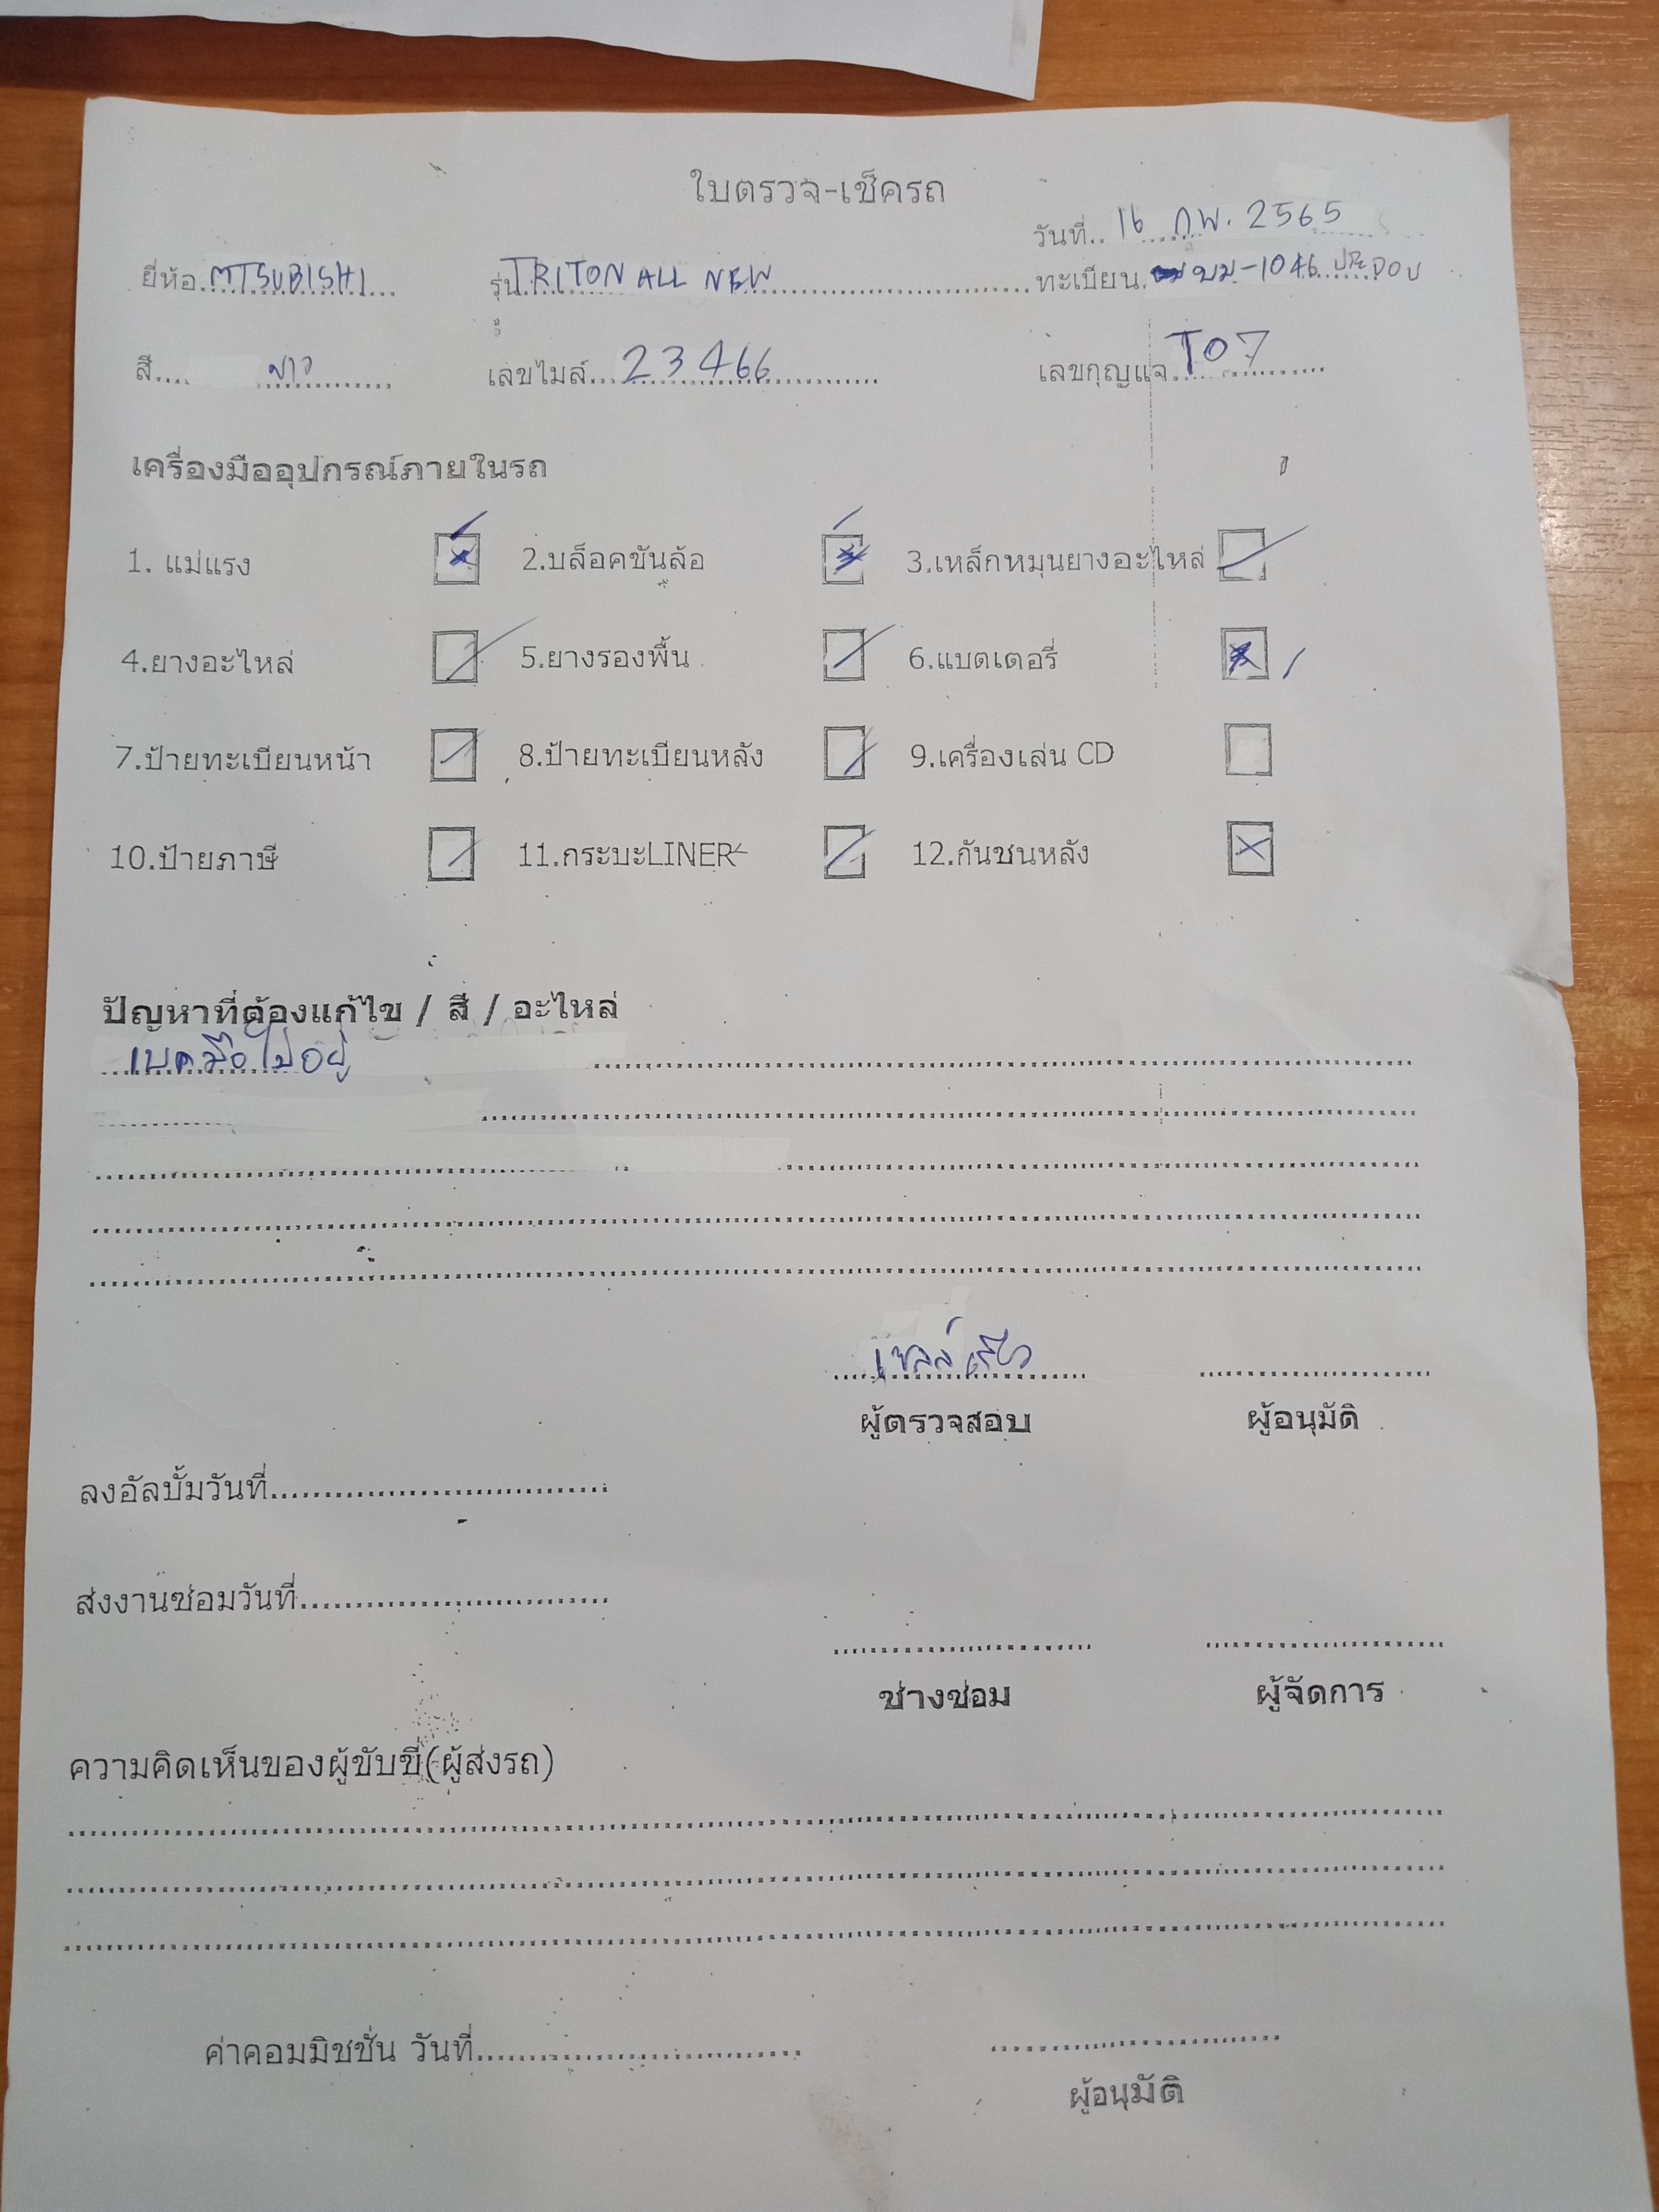 ใบตรวจ-เช็ครถ
วันที่..16 กพ. 2565
ยี่ห้อ MTSUBISHI รุ่น TRITON ALL NEW ทะเบียน บม-1046
สี ขาว เลขไมล์ 23466 เลขกุญแจ T07
เครื่องมืออุปกรณ์ภายในรถ
1. แม่แรง 2.บล็อคขันล้อ 3.เหล็กหมุนยางอะไหล่
4.ยางอะไหล่ 5.ยางรองพื้น 6.แบตเตอรี่
7.ป้ายทะเบียนหน้า 8.ป้ายทะเบียนหลัง 9.เครื่องเล่น CD
10.ป้ายภาษี 11.กระบะLINER 12.กันชนหลัง
ปัญหาที่ต้องแก้ไข / สี / อะไหล่
เบคมือไม่อยู่
ผู้ตรวจสอบ ผู้อนุมัติ
ลงอัลบั้มวันที่
ส่งงานซ่อมวันที่
ช่างซ่อม ผู้จัดการ
ความคิดเห็นของผู้ขับขี่(ผู้ส่งรถ)
ค่าคอมมิชชั่น วันที่
ผู้อนุมัติ